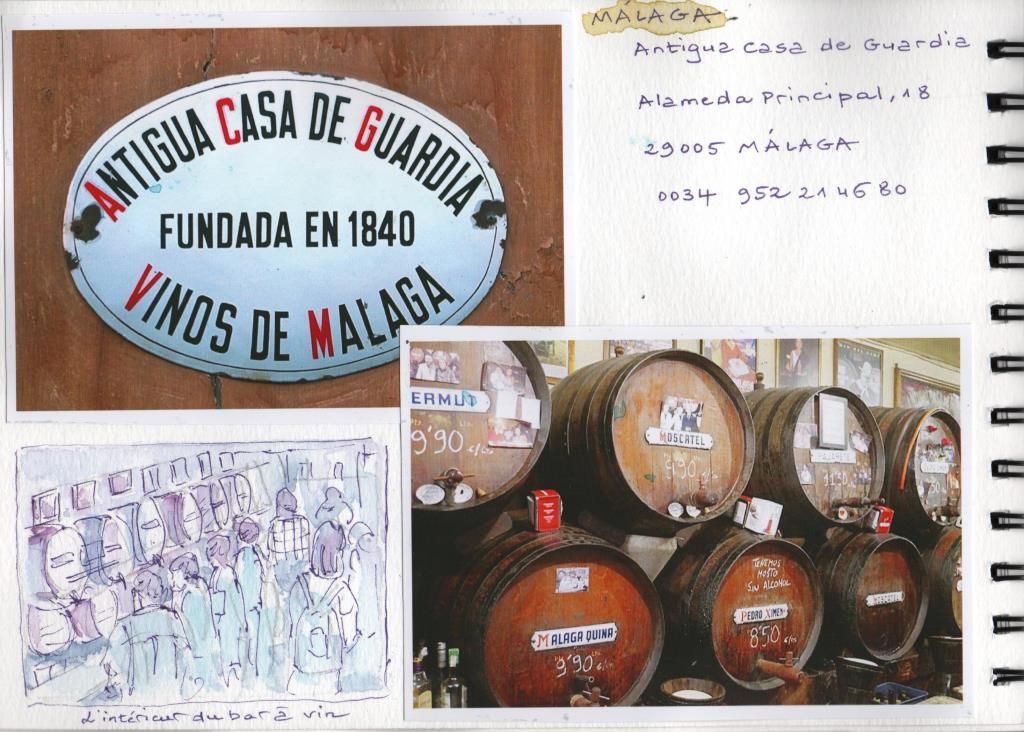 ANTIGUA CASA DE GUARDIA
FUNDADA EN 1840
VINOS DE MALAGA
MÁLAGA
Antigua Casa de Guardia
Alameda Principal, 18
29005 MÁLAGA
0034 952 21 46 80
ERMUT
9'90
MOSCATEL
9'90 €/LTR
TENEMOS
MOSTO
SIN ALCOHOL
MALAGA QUINA
9'90 €/LTR
PEDRO XIMEN
8'50
MOSCATEL
L'intérieur du bar à vin